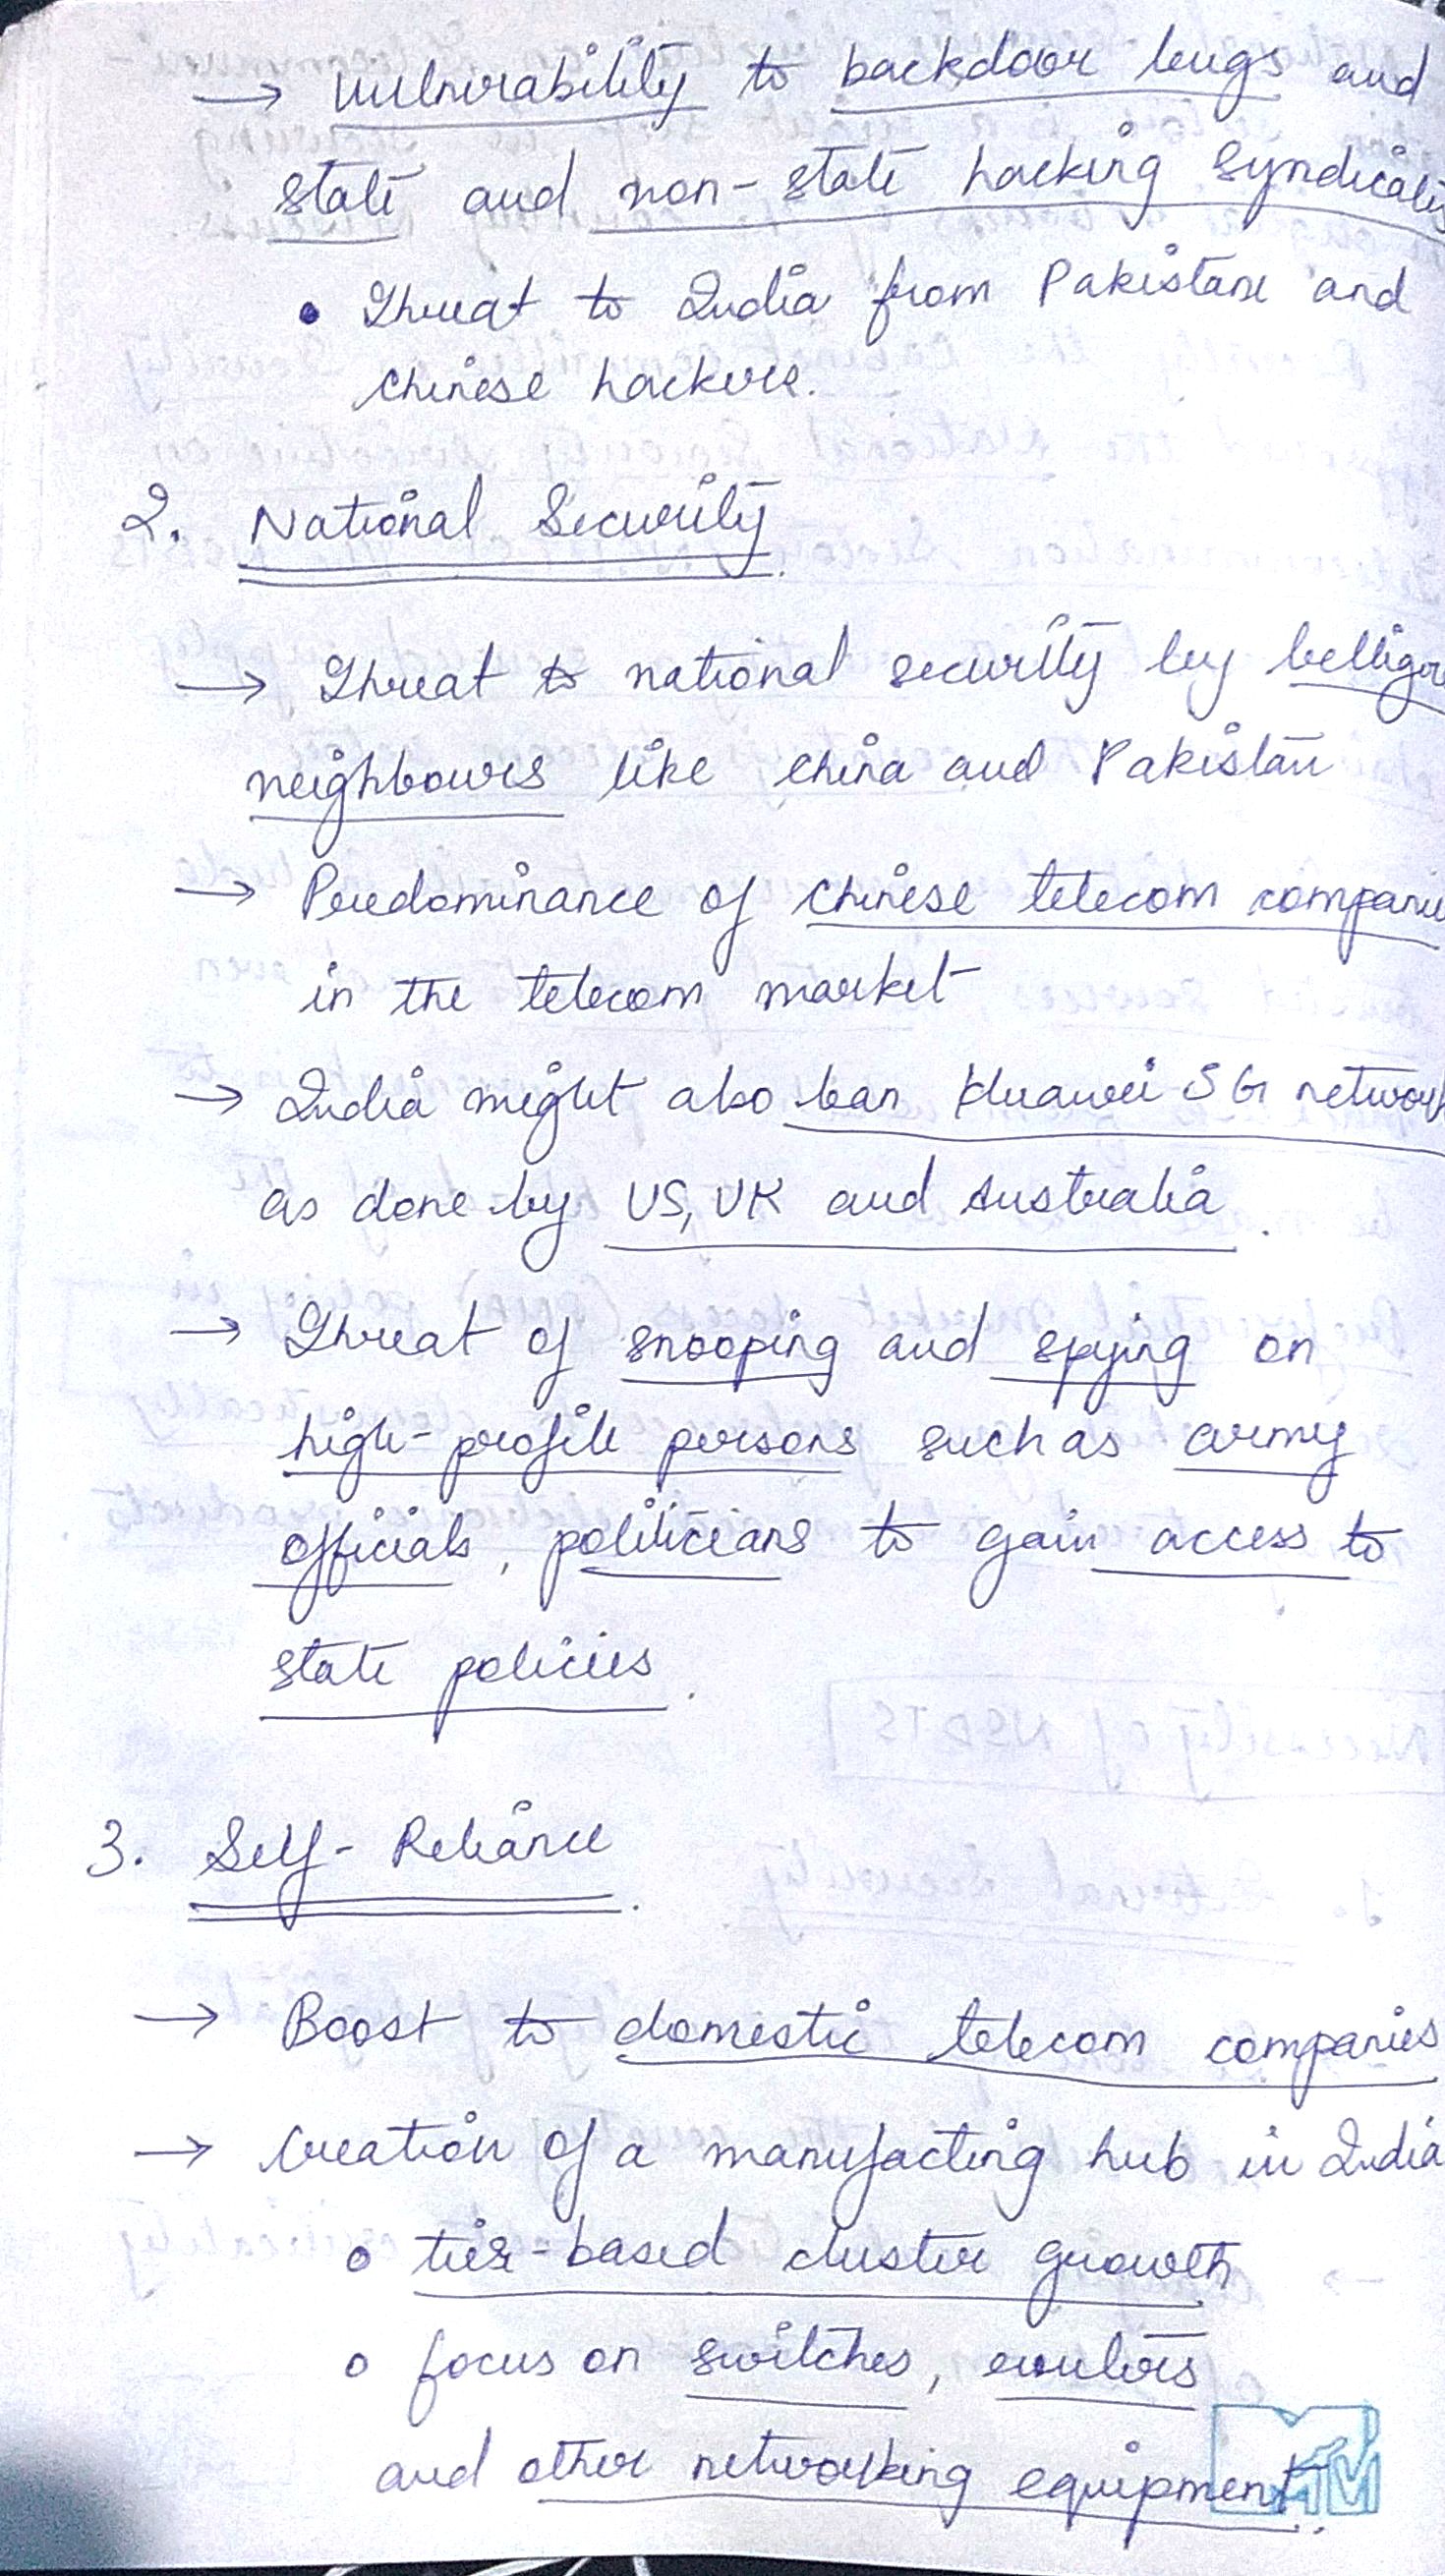 → Vulnerability to backdoor bugs and
state and non-state hacking syndicates
• Threat to India from Pakistan and
Chinese hackers.
2. National Security.
→ Threat to national security by
neighbours like China and Pakistan
→ Predominance of Chinese telecom companie
in the telecom market
→ India might also ban Huawei 5G network
as done by US, UK and Australia.
→ Threat of snooping and spying on
high-profile persons such as army
officials, politicians to gain access to
state policies.
3. Self-Reliance.
→ Boost to domestic telecom companies
→ Creation of a manufacting hub in India
o tier-based cluster growth
o focus on switches, routers
and other networking equipment.
MTM